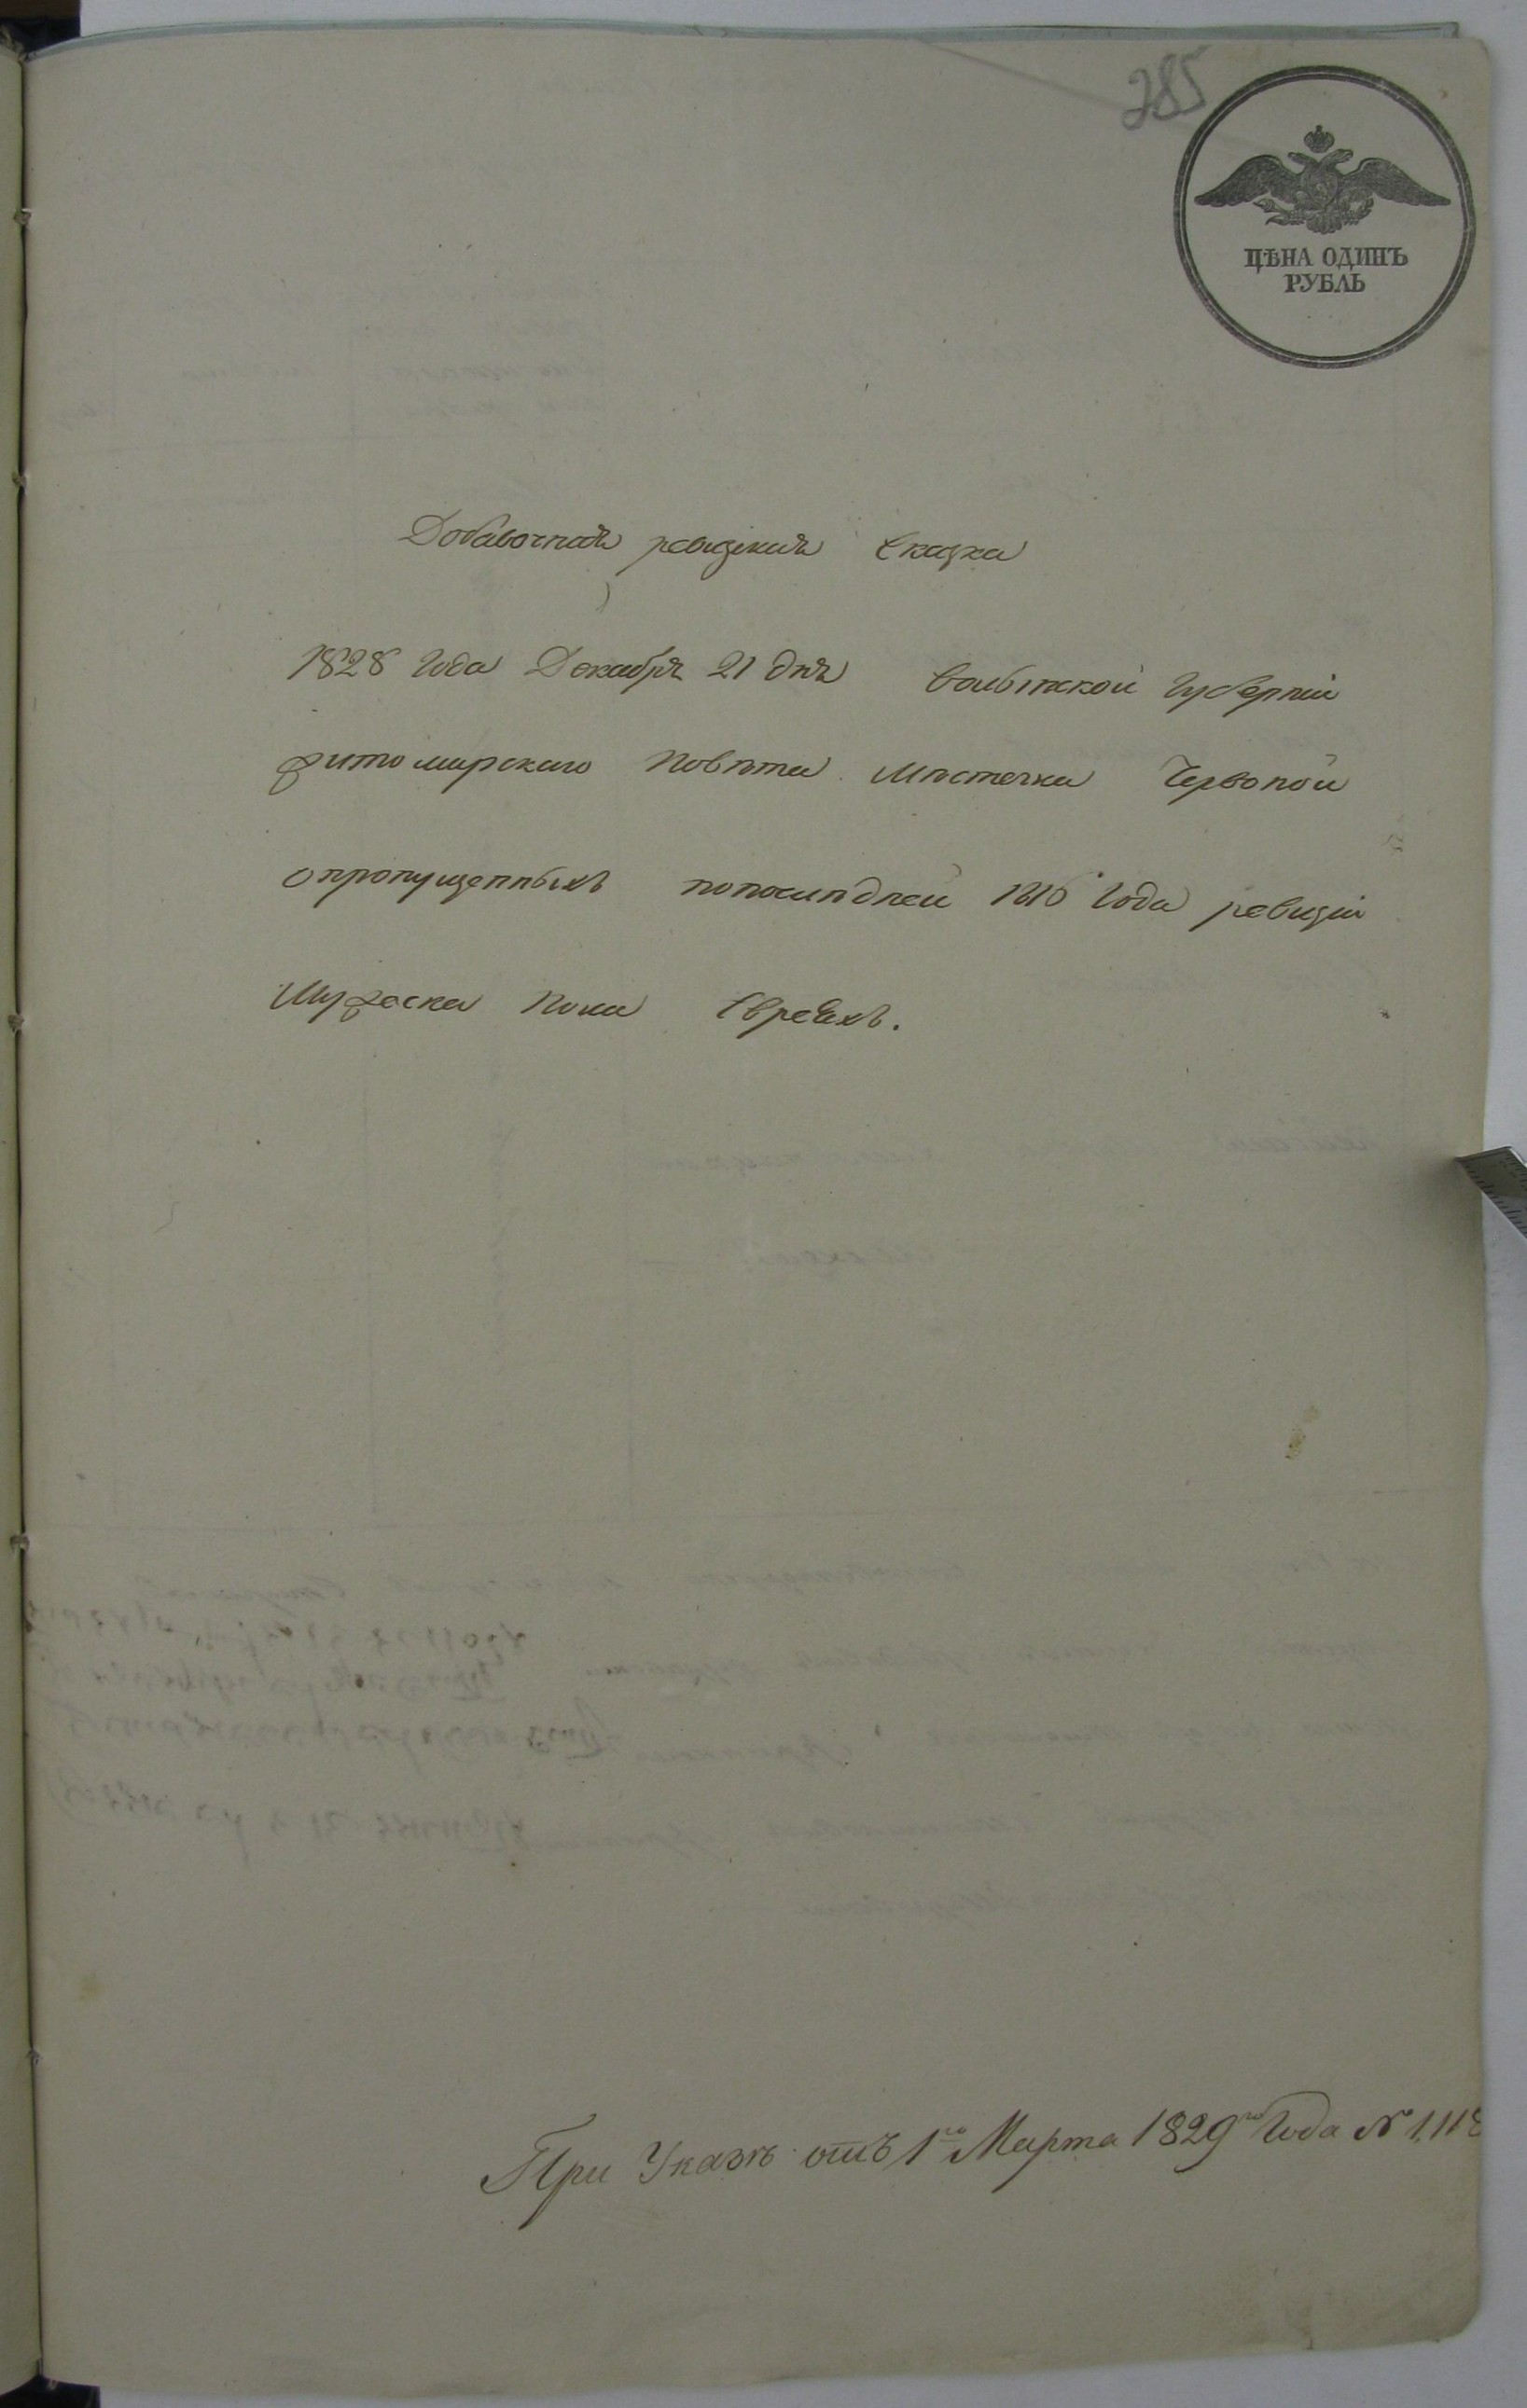 285
ЦѢНА ОДИНЪ
РУБЛЬ
Добавочная ревизкия Сказка
1828 Года Декабря 21 дня волынской Губерніи
житомирскаго повѣта Мѣстечка Червоной
опропущенныхъ попослѣдней 1816 Года ревизіи
Мужеска пола Евреяхъ.
При Указѣ отъ 1го Марта 1829го Года №